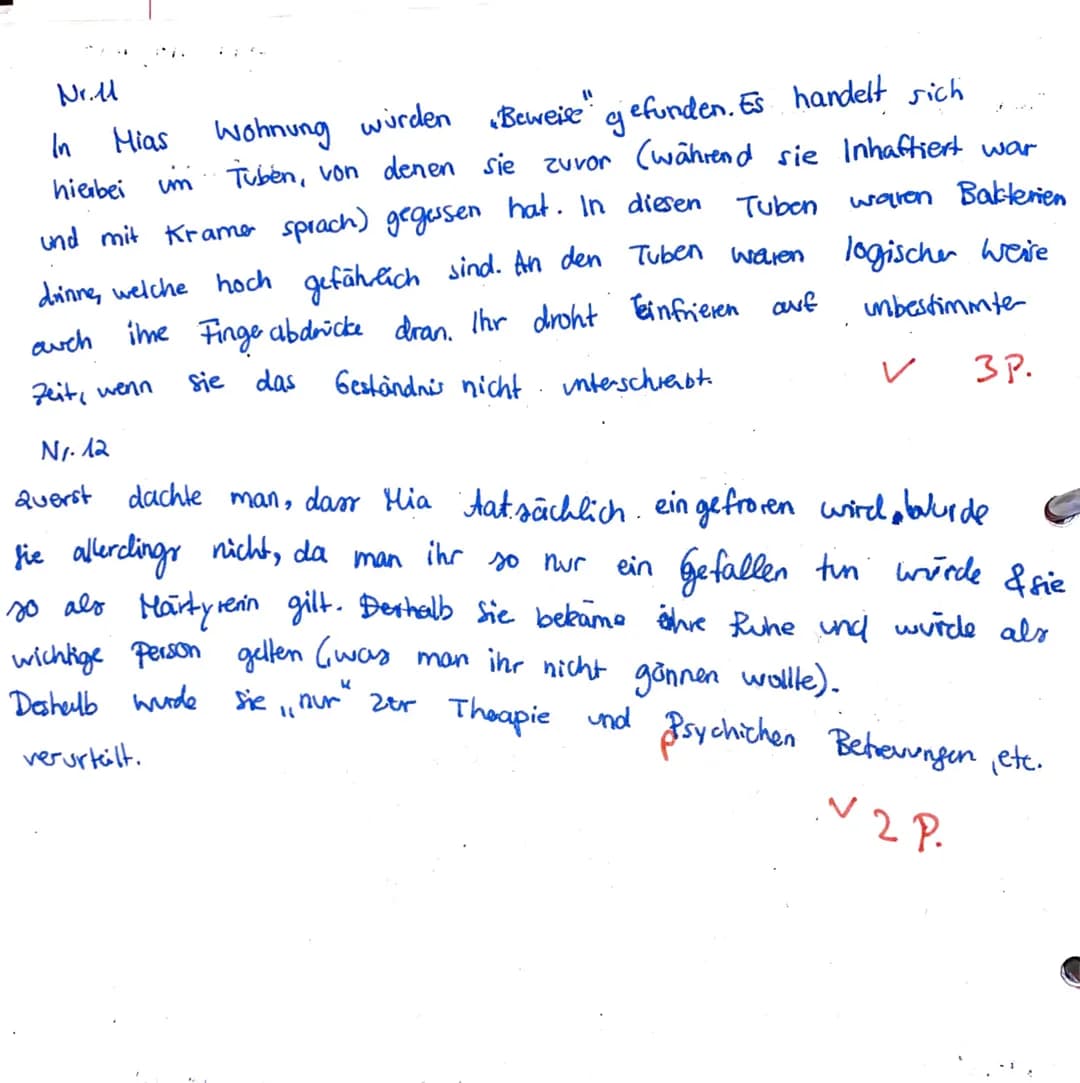 Nr. 11
In Mias Wohnung würden „Beweise" gefunden. Es handelt sich
hierbei um Tuben, von denen sie zuvor (während sie Inhaftiert war
und mit Kramer sprach) gegessen hat. In diesen Tuben waren Bakterien
drinne, welche hoch gefährlich sind. An den Tuben waren logischer weise
auch ihre Fingerabdrücke dran. Ihr droht Einfrieren auf unbestimmter
Zeit, wenn sie das Geständnis nicht unterschreibt.
✓ 3 P.
Nr. 12
Zuerst dachte man, dass Mia tatsächlich eingefroren wird, wurde
sie allerdings nicht, da man ihr so nur ein Gefallen tun würde & sie
so als Märtyrerin gilt. Deshalb Sie bekäme ihre Ruhe und würde als
wichtige Person gelten (was man ihr nicht gönnen wollte).
Deshalb wurde sie „nur" zur Therapie und Psychichen Betreuungen, etc.
p
verurteilt.
✓ 2 P.